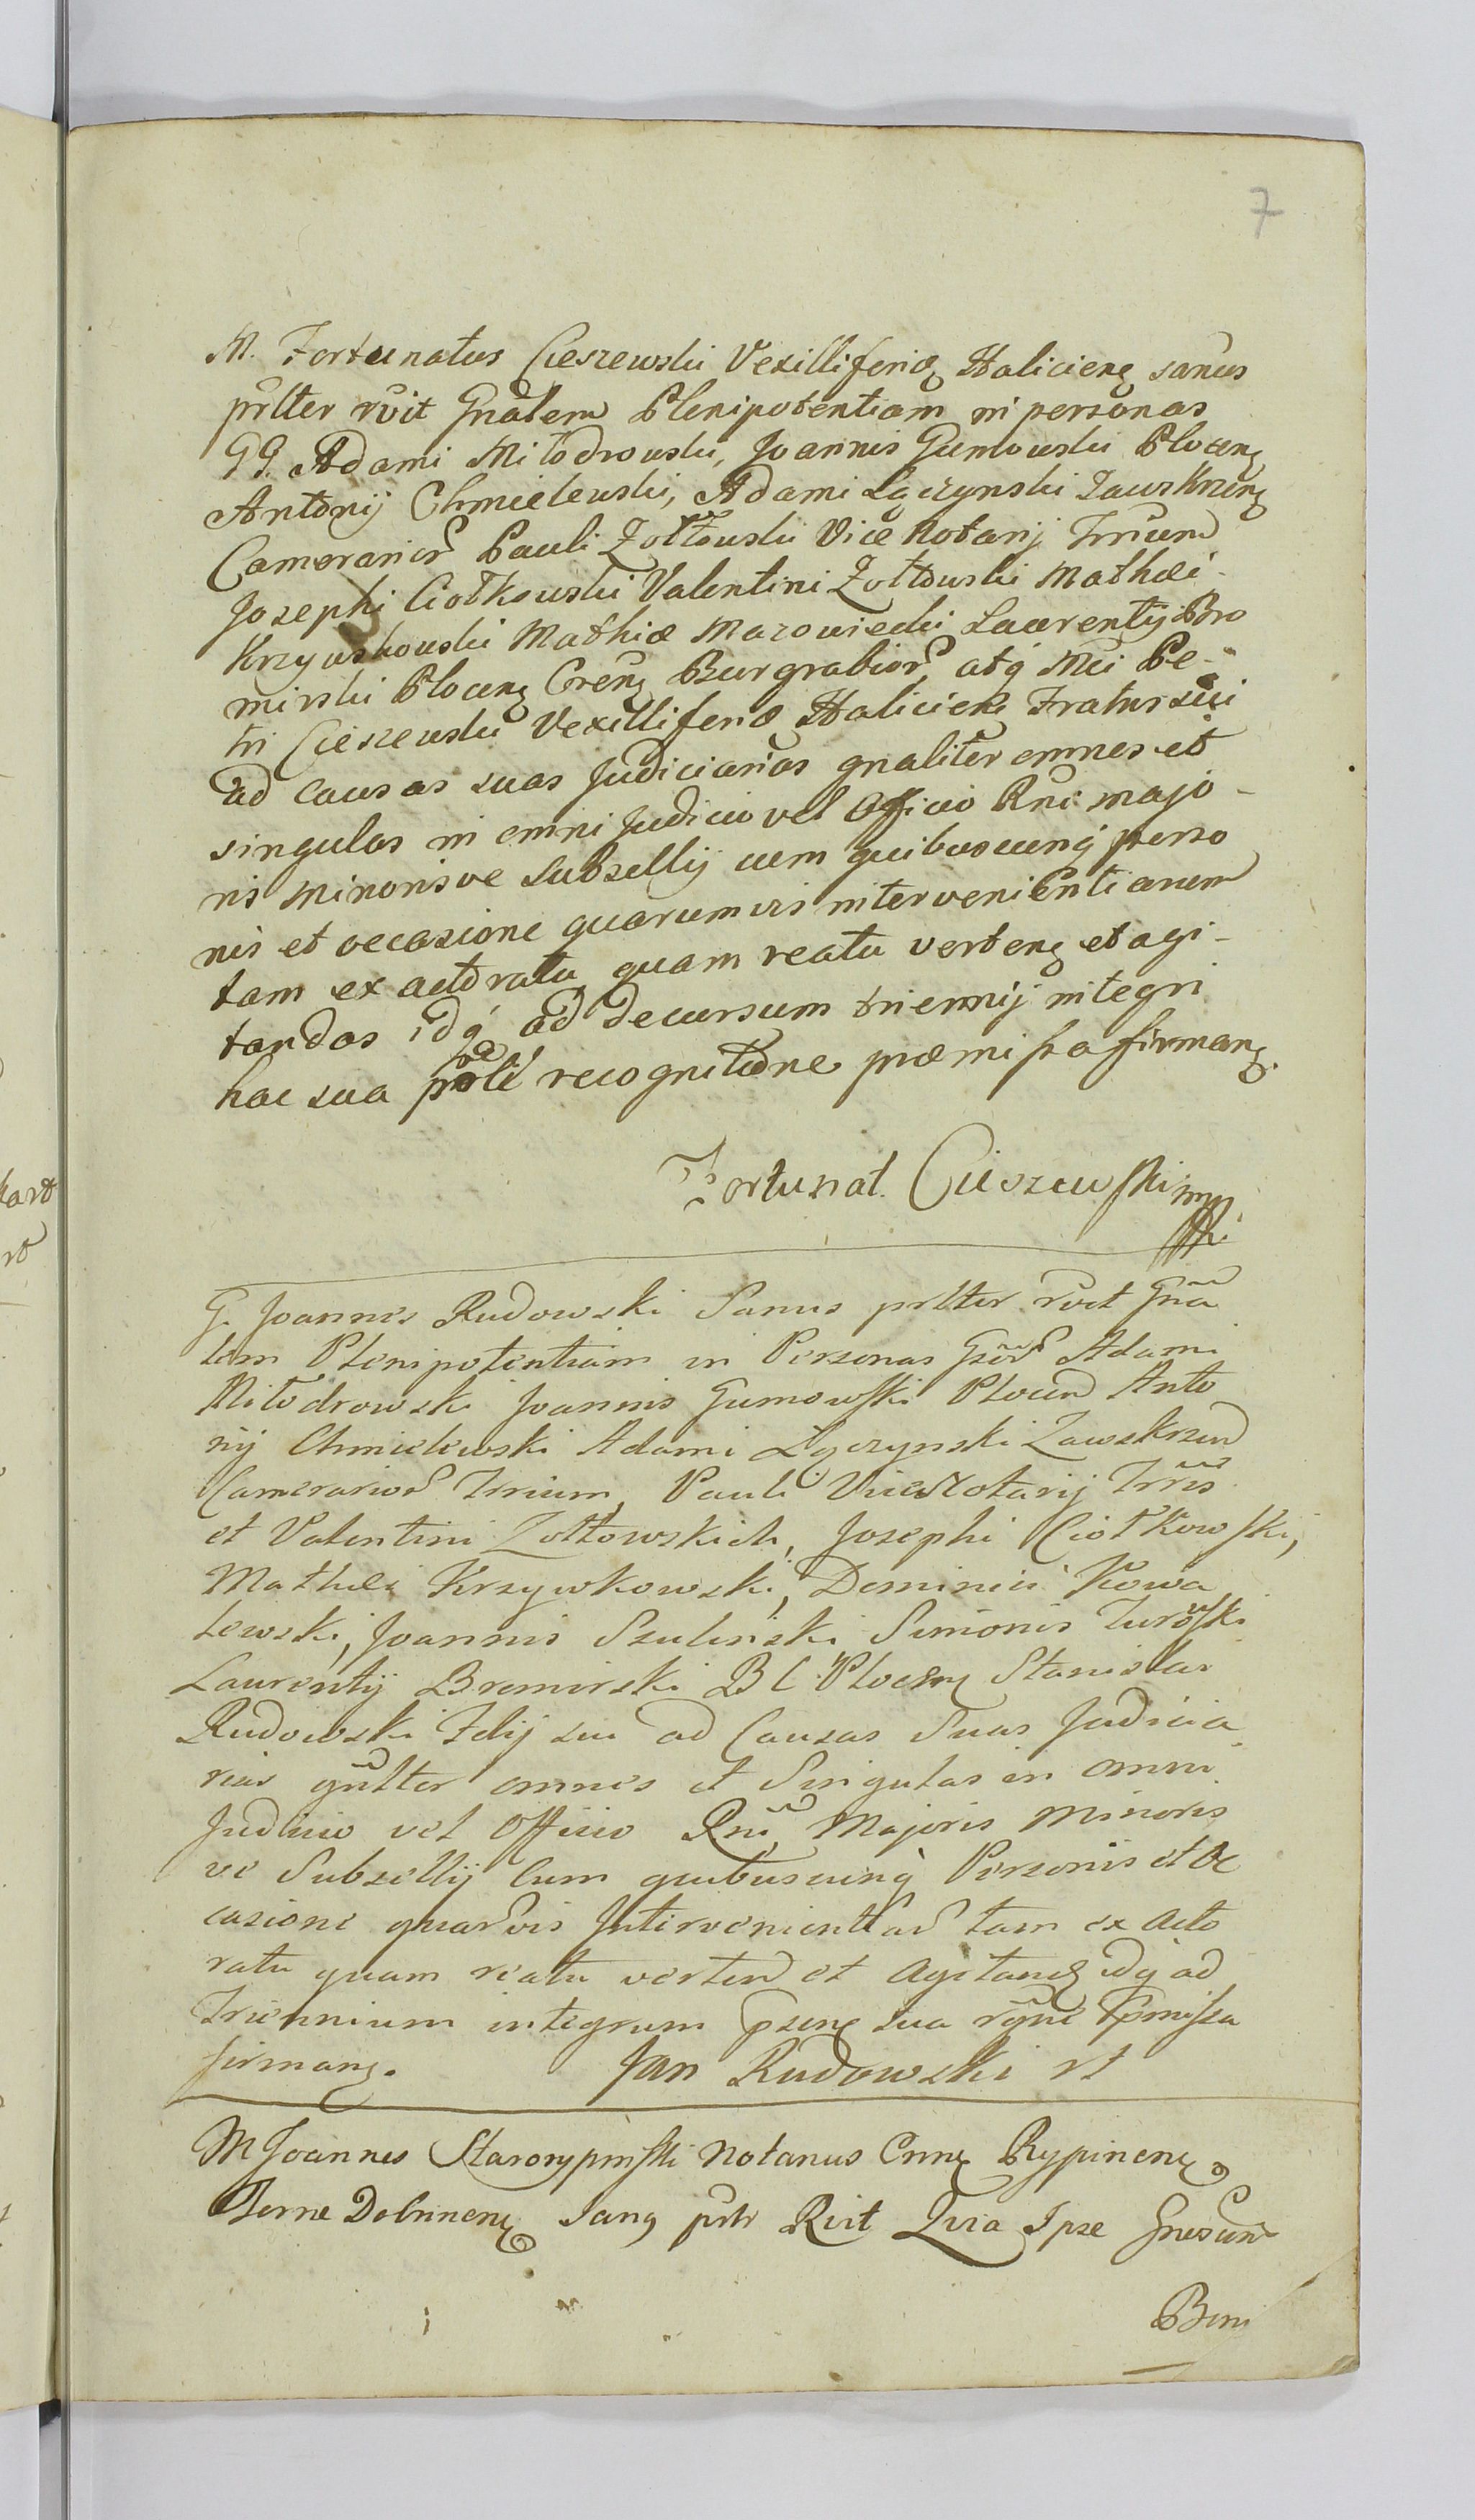 7
M. Fortunatus Cieszewski Vexilliferid Halicien sanus
prlter rvit Gnalem Plenipotentiam in personas
GG. Adami Miłodrowski, Joannis Gumowski Plocen
Antonij Chmielewski, Adami Łączynski Zawskrzen
Camerarior Pauli Zołtowski Vice Notarij Trium
Josephi Ciołkowski Valentini Zołtowski Mathæi
Krzywkowski Mathiæ Mazowiecki Laurentij Bro
mirski Plocen Cren Burgrabior, atq Mci Pe-
tri Cieszewski Vexilliferid Halicien Fratris sui
ad causas suas Judiciarias gnaliter omnes et
singulas in omni Judicio vel Officio Rni majo-
ris minorisve Subsellij cum quibuscunq perso
nis et occasione quarumvis intervenientiarum
tam ex actoratu quam reatu verten et agi-
tandas idq ad decursum triennij integri
hac sua recognitione præmissa firmang.
Fortunat. Cieszewski mp
G. Joannes Rudowski Sanus prlter rvit Gna
lem Plenipotentiam in Personas Gsor Adami
Miłodrowski Joannis Gumowski Plocen Anto
nij Chmielewski Adami Łączynski Zawskrzen
Camerarior Trium, Pauli ViceNotarij Trris
et Valentini Zołtowskich, Josephi Ciołkowski,
Mathæi Krzywkowski, Dominici Kowa
lewski, Joannis Szulinski Simonis Turowski
Laurentij Bromirski B C Plocen Stanislai
Rudowski Filij sui ad Causas Suas Judicia
rias gnlter omnes et Singulas in omni
Judicio vel Officio Rni Majoris Minoris
ve Subsellij Cum quibuscunq Personis et Oc
casione quarvis Intervenientiar tam ex Acto
ratu quam reatu verten et Agitand idq ad
Triennium integrum psene sua rgne pmissa
firmang. Jan Rudowski rt
M Joannes Starorypinski Notarius Crn Rypinen
Terræ Dobrinen Sang prltr Rvit Quia Ipse
Boni